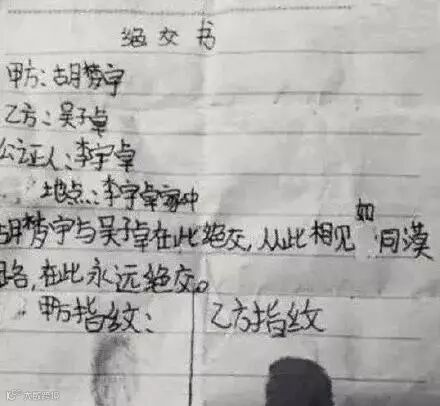 绝交书
甲方:胡梦宇
乙方:吴子卓
公证人:李宇卓
地点:李宇卓家中
胡梦宇与吴子卓在此绝交,从此相见如同漠
路,在此永远绝交。
甲方指纹: 乙方指纹